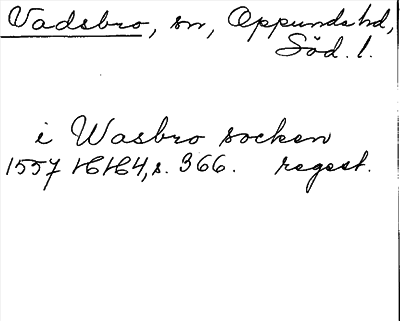 Vadsbro, sn, Oppunda hd,
Söd. l.
i Wasbro socken
1557 HH4, s. 366. regest.